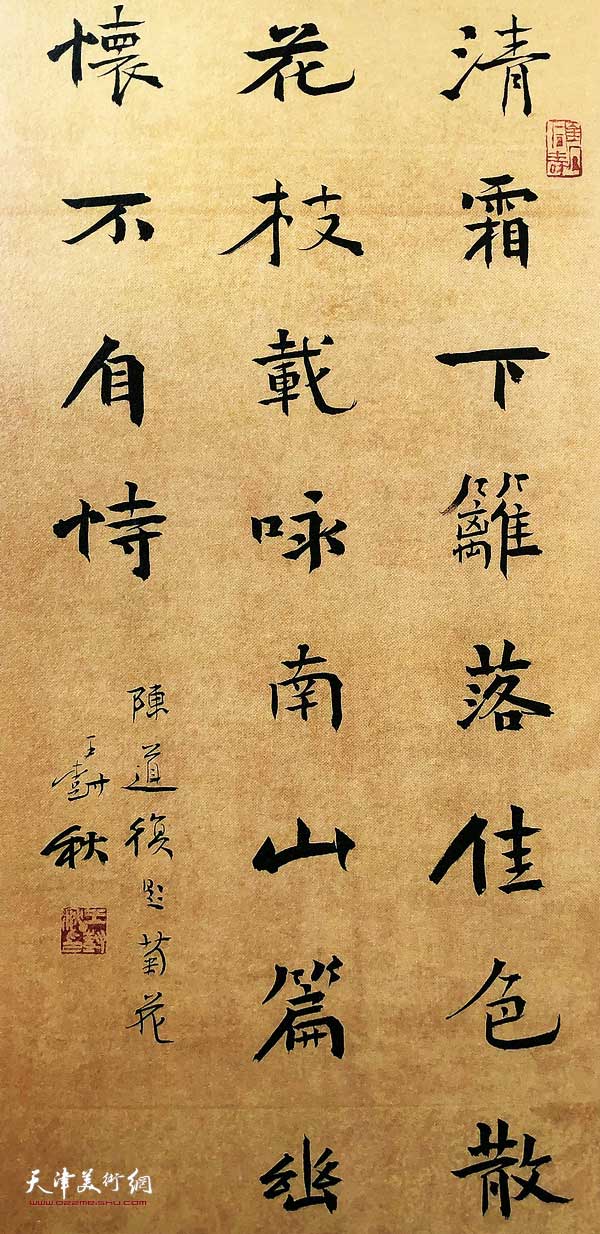 清霜下籬落佳色散
花枝載咏南山篇幽
懷不自恃
陳道復題菊花
秋
天津美術網
www.022meishu.com